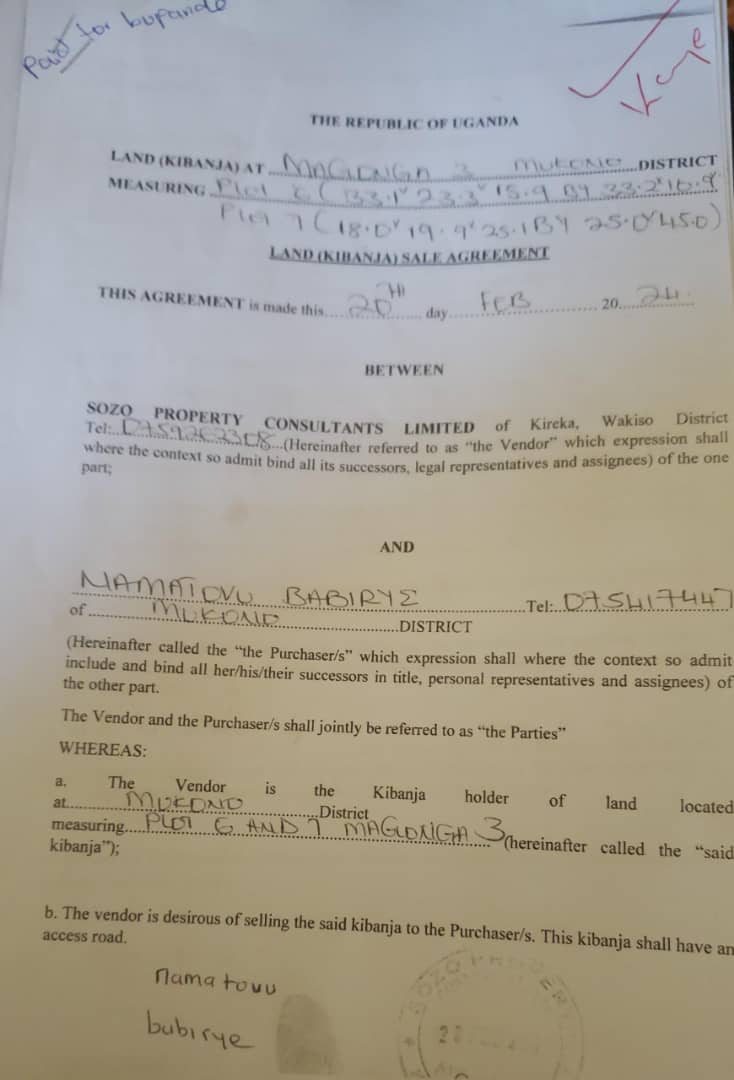 Paid for bupande
Kaye
THE REPUBLIC OF UGANDA
LAND (KIBANJA) AT MAGONGA 3 MUKONO DISTRICT
MEASURING Plot 6 ( 33.1" 23.3" 15.9 BY 33.2" 16.9
Plot 7 ( 18.0" 19.9" 25.1 BY 25.0" 45.0)
LAND (KIBANJA) SALE AGREEMENT
THIS AGREEMENT is made this 20TH day FEB 20 24.
BETWEEN
SOZO PROPERTY CONSULTANTS LIMITED of Kireka, Wakiso District
Tel: (Hereinafter referred to as "the Vendor" which expression shall
where the context so admit bind all its successors, legal representatives and assignees) of the one
part;
AND
NAMATOVU BABIRYE Tel: 075417447
of MUKONO DISTRICT
(Hereinafter called the "the Purchaser/s" which expression shall where the context so admit
include and bind all her/his/their successors in title, personal representatives and assignees) of
the other part.
The Vendor and the Purchaser/s shall jointly be referred to as "the Parties"
WHEREAS:
a. The Vendor is the Kibanja holder of land located
at MUKONO District
measuring PLOT 6 AND 7 MAGONGA 3 (hereinafter called the "said
kibanja");
b. The vendor is desirous of selling the said kibanja to the Purchaser/s. This kibanja shall have an
access road.
Namatovu
babirye
SOZO